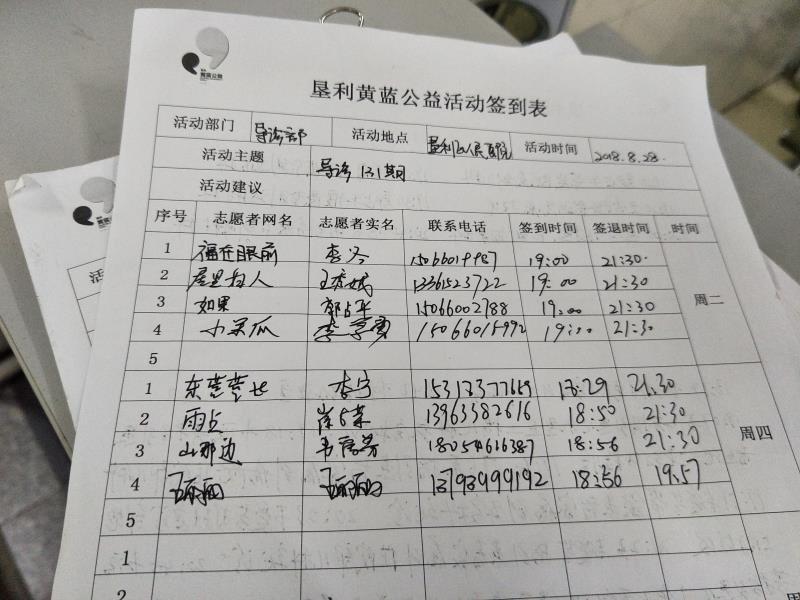 黄蓝公益
垦利黄蓝公益活动签到表
活动部门 导诊部 活动地点 垦利区人民医院 活动时间 2018.8.28.
活动主题 导诊131期
活动建议
序号 志愿者网名 志愿者实名 联系电话 签到时间 签退时间 时间
1 福在眼前 李 19:00 21:30.
2 13361523722 19:00 21:30
3 如果 15066002788 19:00 21:30
4 小呆瓜 15066015992 19:00 21:30
周二
5
1 李宁 21:30
2 雨点 13963382616 18:50 21:30
3 山那边 18054616387 18:56 21:30
4 13793999192 18:56 19:57
周四
5
1
2
活